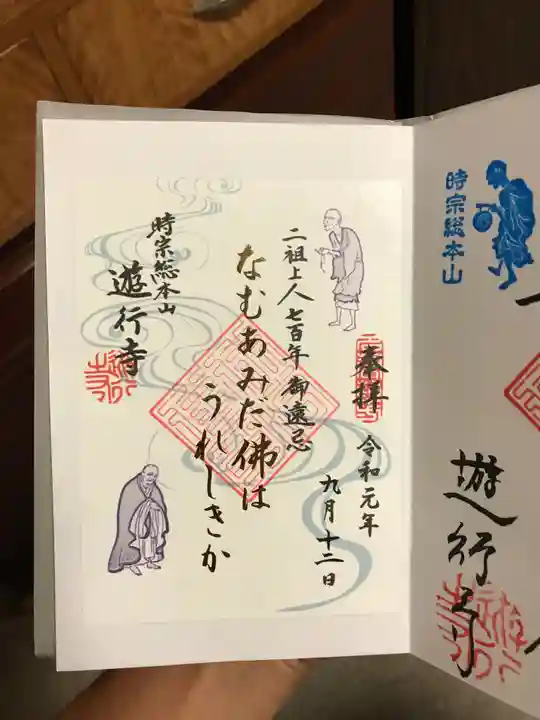 奉拝
令和元年
九月十二日
二祖上人七百年御遠忌
なむあみだ佛は
うれしきか
時宗総本山
遊行寺
時宗総本山
遊行寺